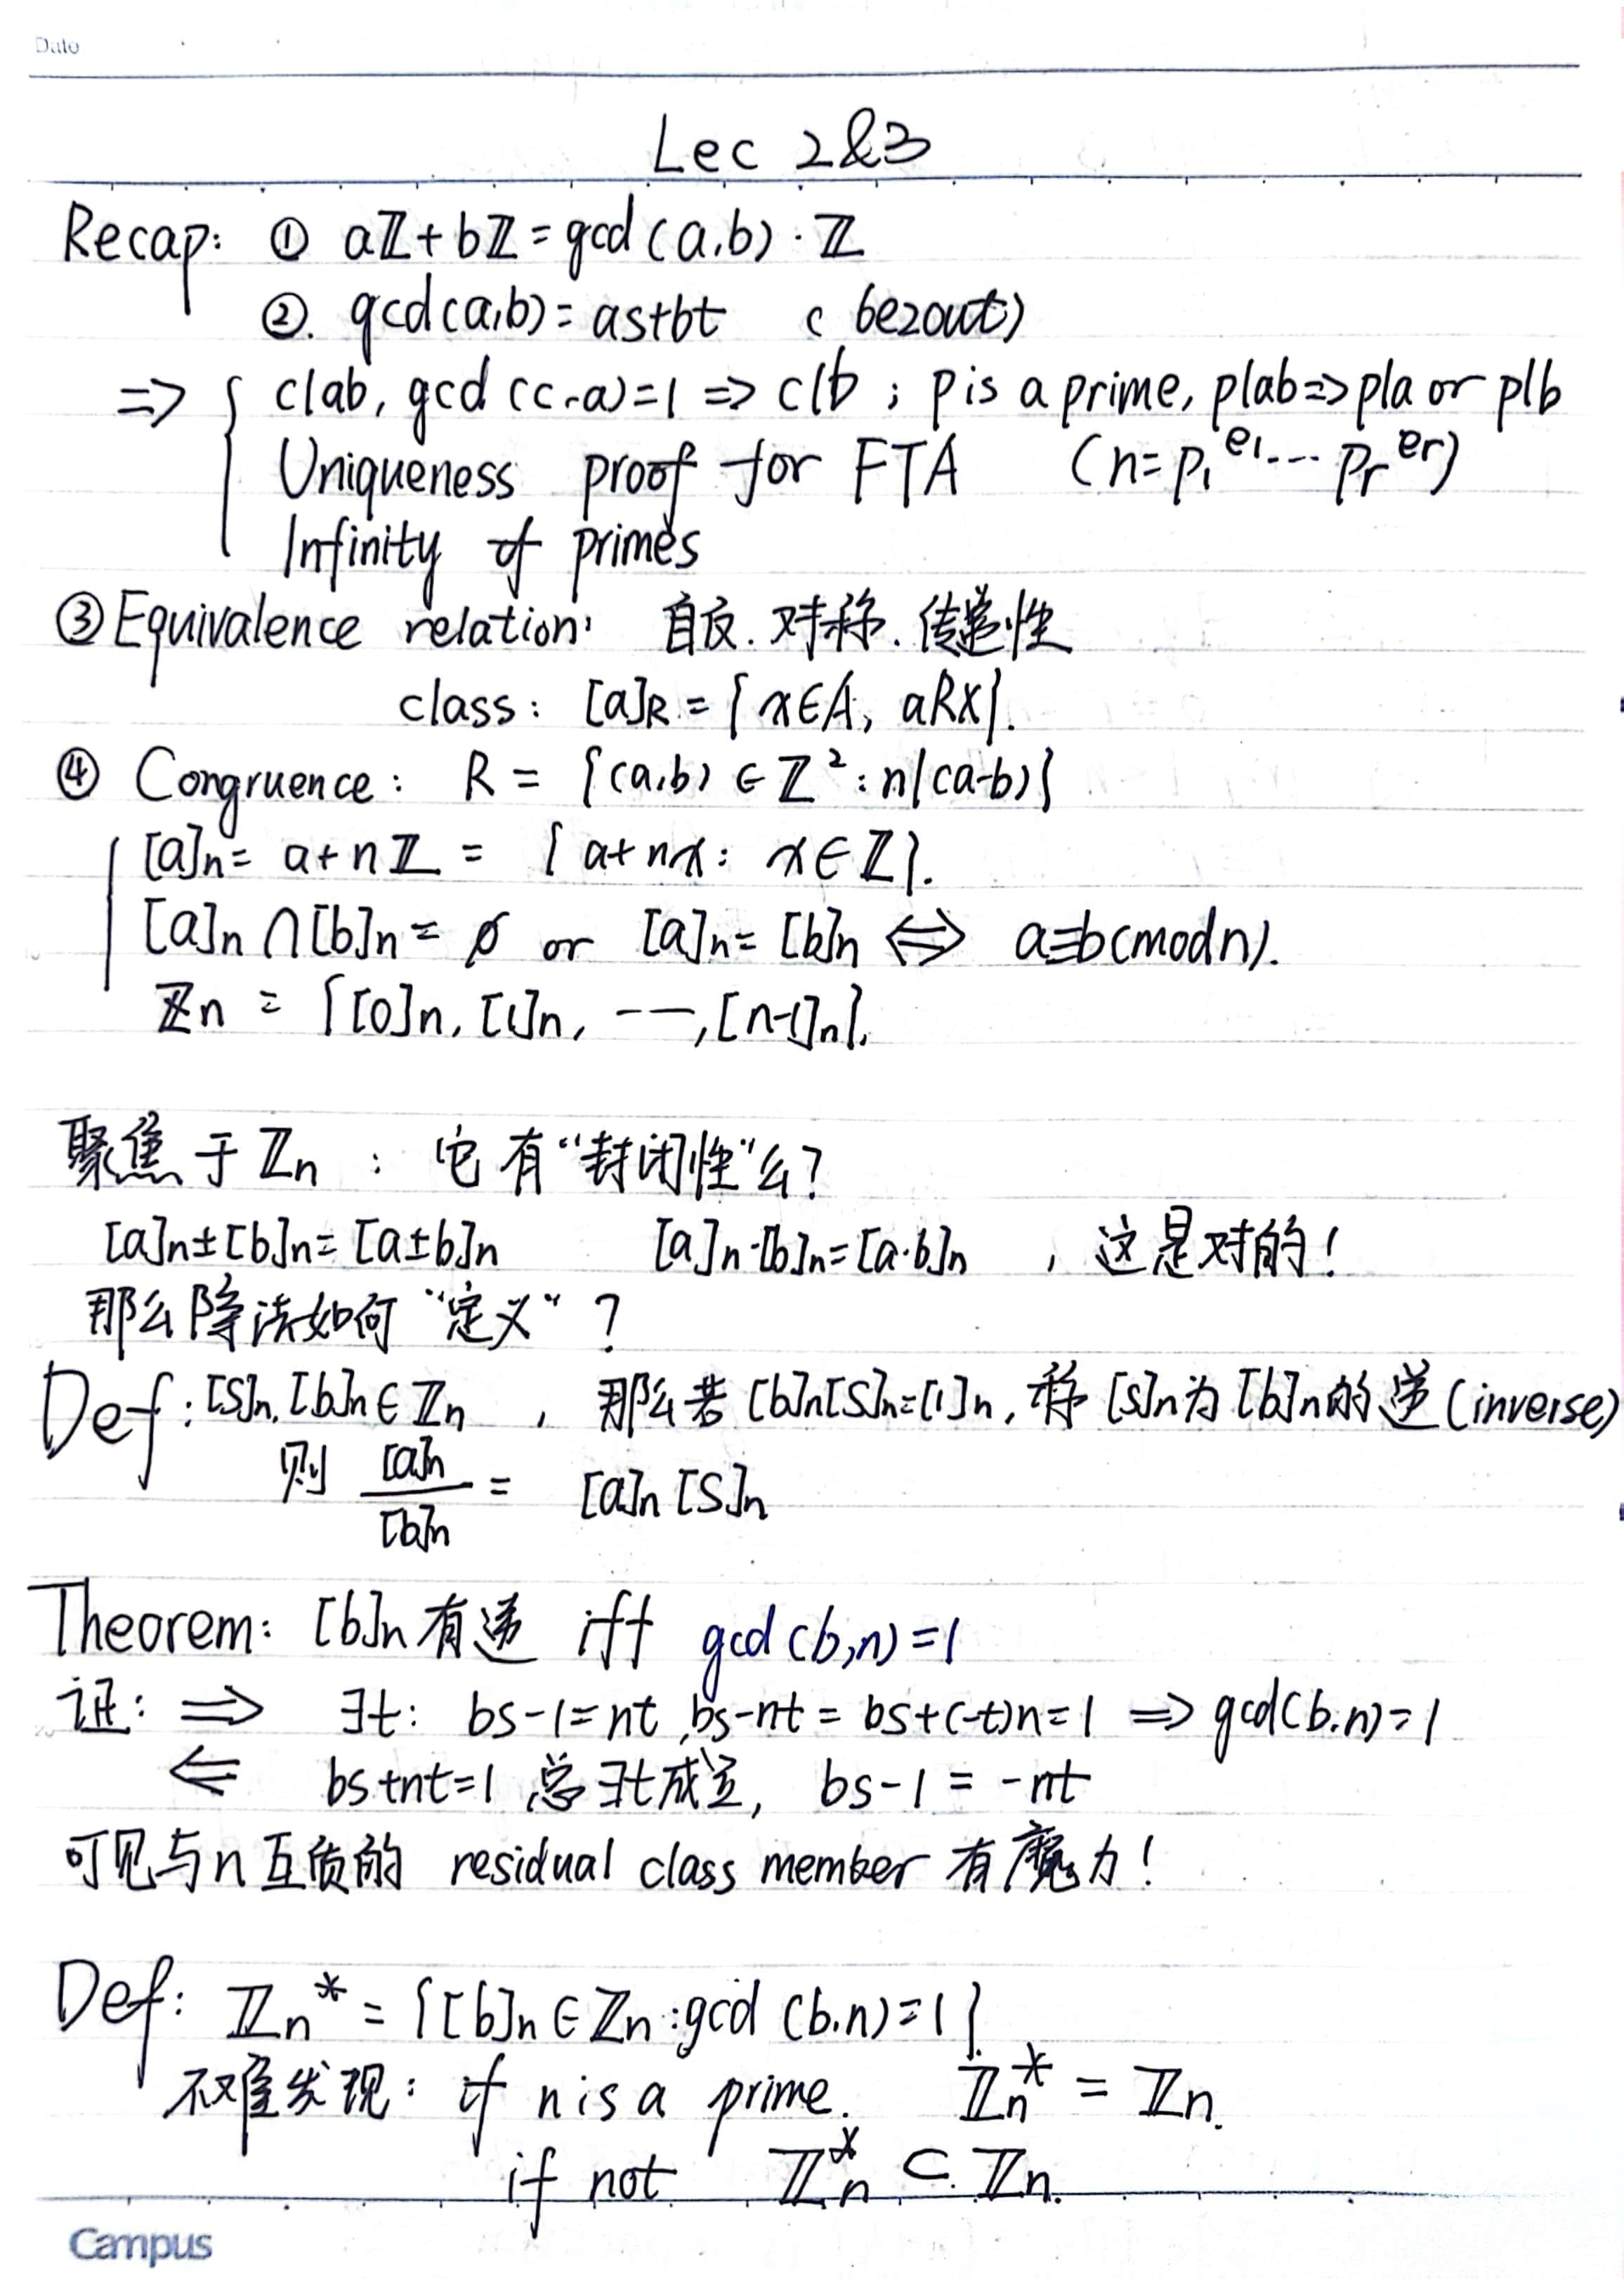 Date
Lec 2&3
Recap: ① aℤ+bℤ=gcd(a,b)·ℤ
②. gcd(a,b)=as+bt (bezout)
⇒ { c|ab, gcd(c,a)=1 ⇒ c|b ; p is a prime, p|ab ⇒ p|a or p|b
Uniqueness proof for FTA (n=p₁^e₁···pᵣ^eᵣ)
Infinity of primes
③ Equivalence relation: 自反. 对称. 传递性
class: [a]R = {x∈A, aRx}.
④ Congruence: R = {(a,b) ∈ ℤ²: n|(a-b)}
[a]n = a+nℤ = {a+nx: x∈ℤ}.
[a]n ∩ [b]n = ∅ or [a]n = [b]n ⇔ a≡b(mod n).
ℤn = {[0]n, [1]n, ---, [n-1]n}.
聚焦于ℤn : 它有“封闭性”么?
[a]n±[b]n=[a±b]n [a]n·[b]n=[a·b]n , 这是对的!
那么除法如何“定义”?
Def: [s]n, [b]n∈ℤn , 那么若[b]n[s]n=[1]n, 称[s]n为[b]n的逆(inverse)
则 [a]n/[b]n = [a]n[s]n
Theorem: [b]n有逆 iff gcd(b,n)=1
证: ⇒ ∃t: bs-1=nt, bs-nt = bs+(-t)n=1 ⇒ gcd(b,n)=1
⇐ bs+nt=1 总∃t成立, bs-1 = -nt
可见与n互质的 residual class member 有魔力!
Def: ℤn* = {[b]n∈ℤn: gcd(b,n)=1}.
不难发现: if n is a prime. ℤn* = ℤn.
if not ℤn* ⊂ ℤn.
Campus